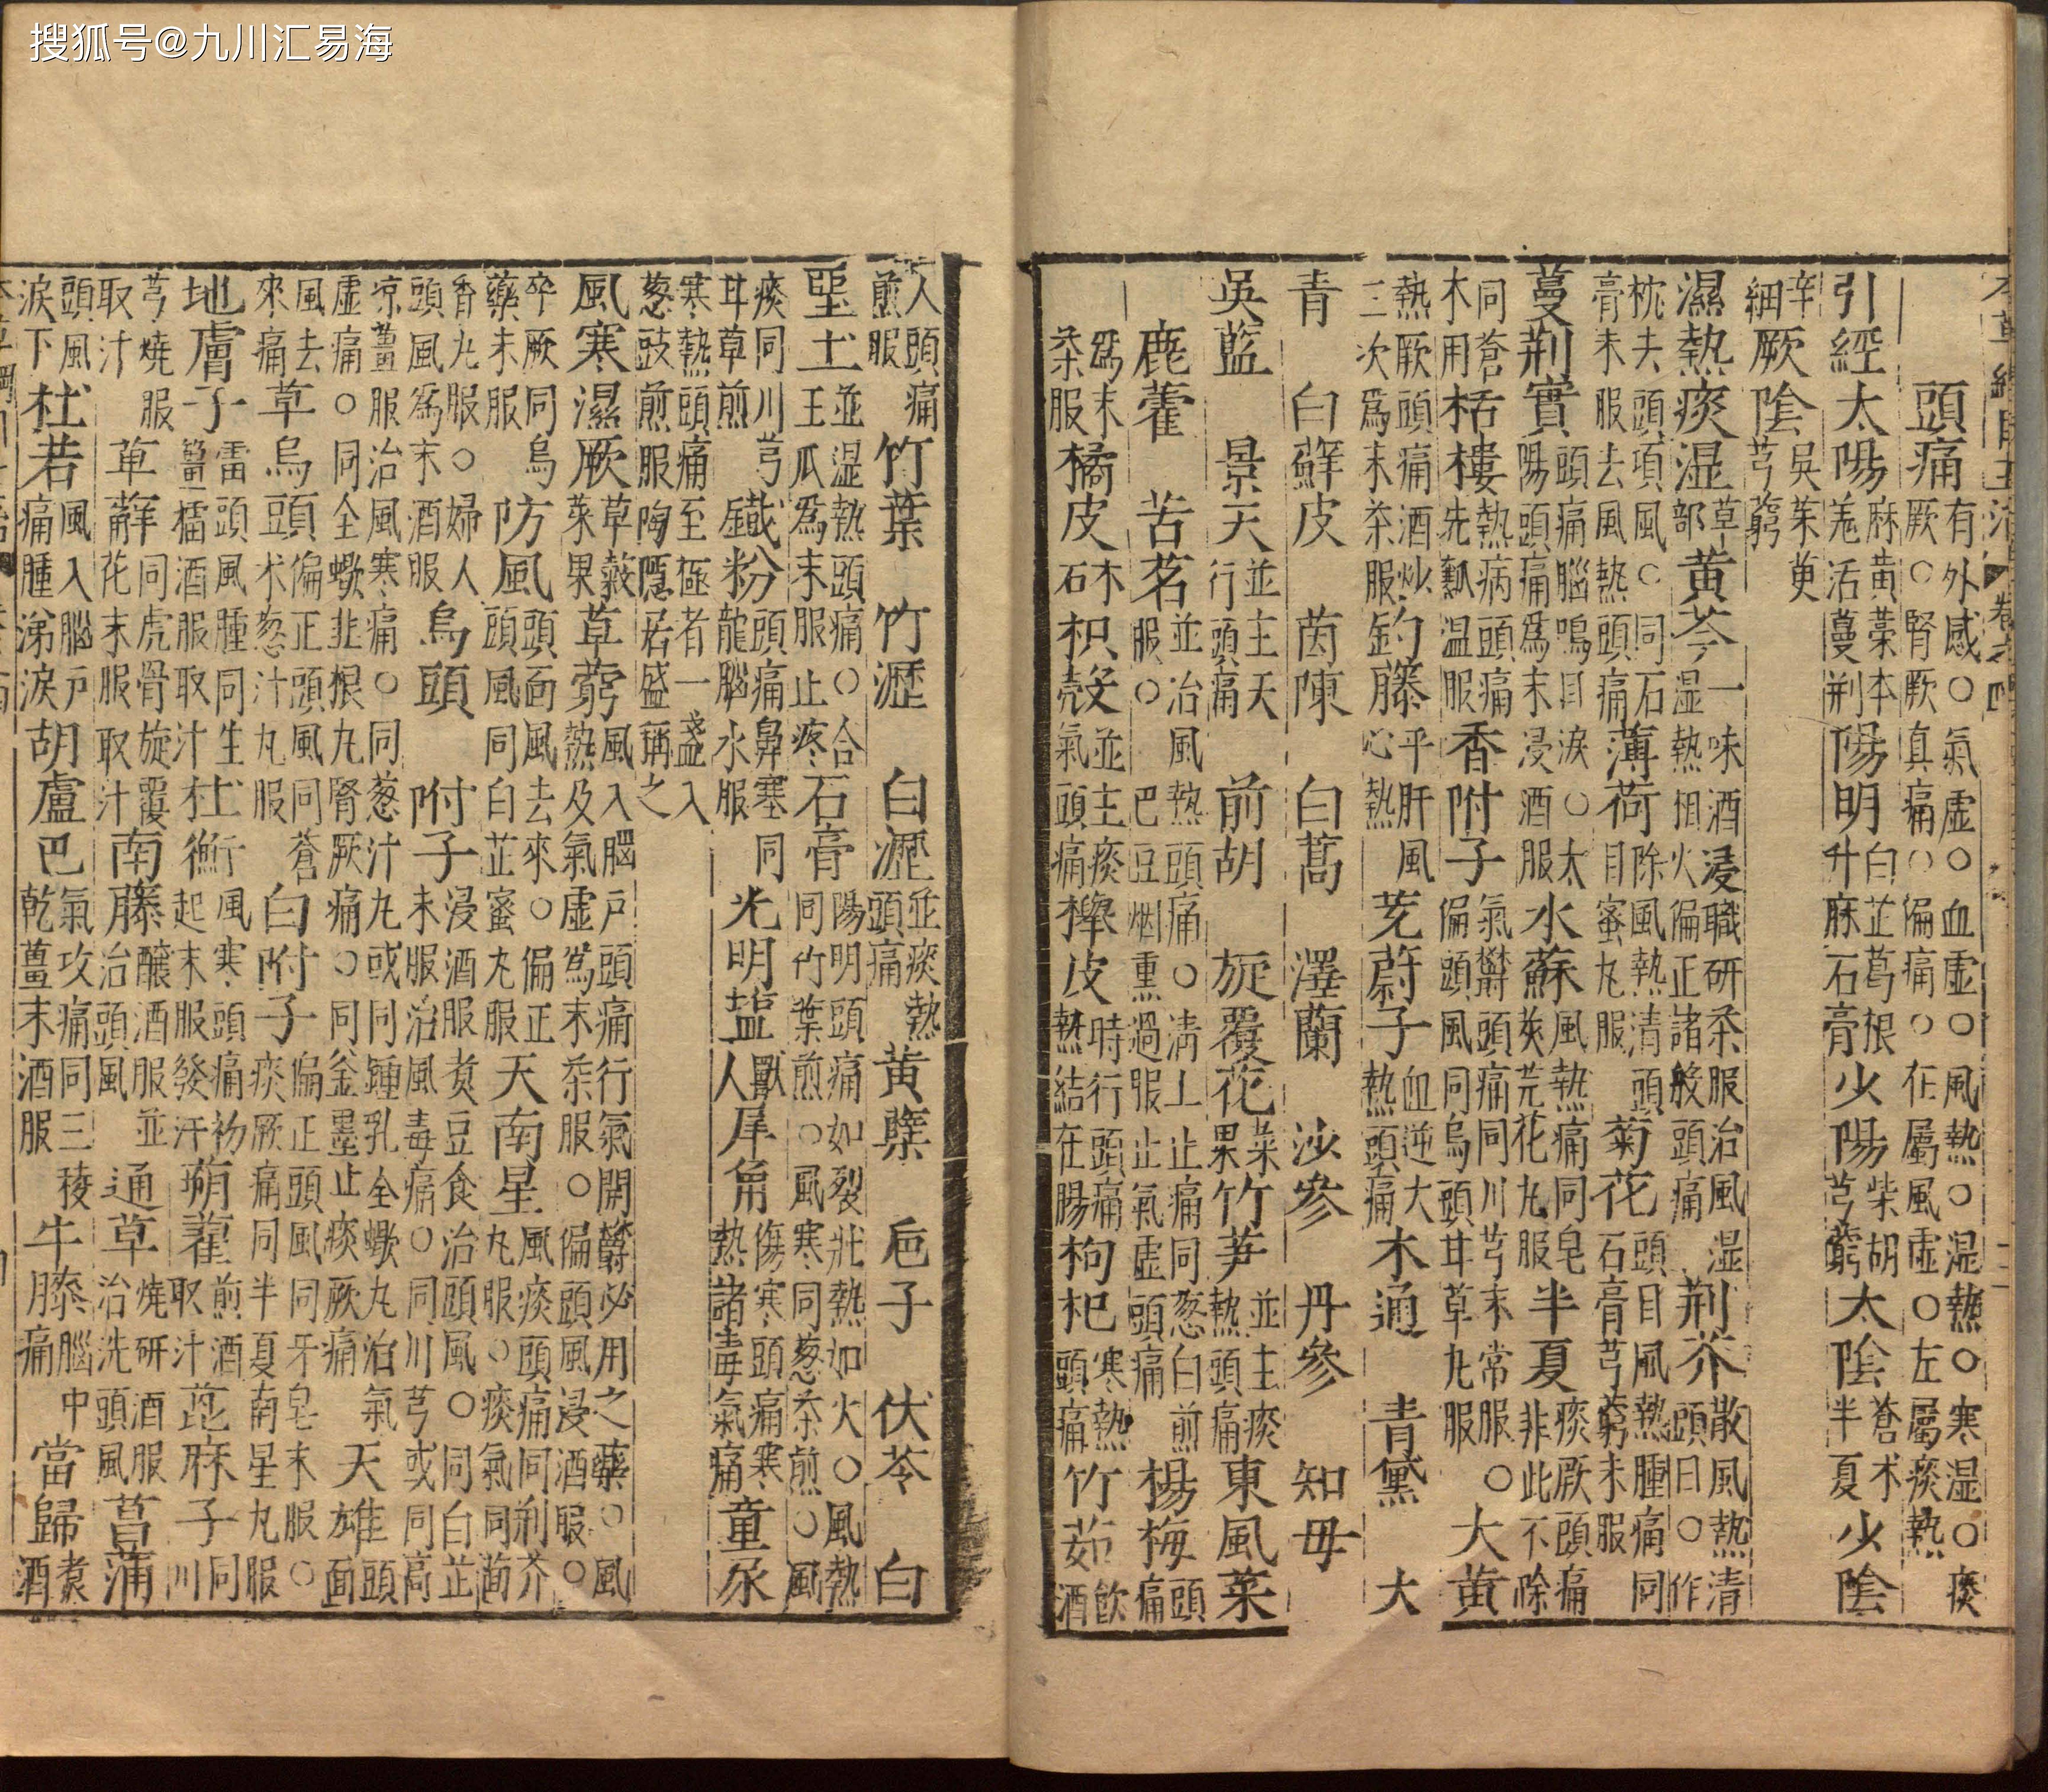 搜狐号@九川汇易海
頭痛有外感○氣虛○血虛○風熱○濕熱○寒湿○痰厥○腎厥真痛○偏痛○在屬風虛○左屬痰熱
引經太陽麻黄藁本羗活蔓荆陽明白芷葛根升麻石膏少陽柴胡芎藭太陰蒼术半夏少陰
辛細厥陰吳茱萸芎藭
濕熱痰湿草部黄芩一味酒浸職研茶服治風湿湿熱相火偏正諸般頭痛荆芥散風熱清頭目○作
枕去頭項風○同石膏末服去風熱頭痛薄荷除風熱清頭目蜜丸服菊花頭目風熱腫痛同石膏芎藭末服
蔓荆實頭痛腦鳴目淚○太陽頭痛爲末浸酒服水蘇風熱痛同皂莢芫花丸服半夏痰厥頭痛非此不除
同蒼木用栝樓熱病頭痛先瓤温服香附子氣欝頭痛同川芎末常服○偏頭風同烏頭甘草丸服大黄
熱厥頭痛酒炒三次爲末茶服釣藤平肝風心熱茺蔚子血逆大熱頭痛木通 青黛 大
青 白蘚皮 茵陳 白蒿 澤蘭 沙參 丹參 知母
吳藍 景天並主天行頭痛 前胡 旋覆花菜果竹笋並主痰熱頭痛東風菜
鹿藿 苦茗並治風熱頭痛○淸上止痛同葱白煎服○巴豆烟熏過服止氣虛頭痛楊梅頭痛
爲末茶服橘皮木石枳殼並主痰氣頭痛櫸皮時行頭痛熱結在腸枸杞寒熱頭痛竹茹飲酒
人頭痛煎服竹葉 竹瀝 白瀝並痰熱頭痛黄蘗 巵子 伏苓 白
堊土並湿熱頭痛○合王瓜爲末服止疼石膏陽明頭痛如裂壯熱如火○風熱同竹葉煎○風寒同葱茶煎○風
痰同川芎甘草煎鐵粉頭痛鼻塞同龍腦水服光明塩獸人犀角傷寒頭痛寒熱諸毒氣痛童尿
寒熱頭痛至極者一盞入葱豉煎服陶隱居盛稱之
風寒濕厥草穀菜果草藭風入腦戸頭痛行氣開欝必用之藥○風熱及氣虛爲末茶服○偏頭風浸酒服○
卒厥同烏藥末服防風頭面風去來○偏正頭風同白芷蜜丸服天南星風痰頭痛同荆芥丸服○痰氣同茴
香丸服○婦人頭風爲末酒服烏頭 附子浸酒服煑豆食治頭風○同白芷末服治風毒痛○同川芎或同高
凉薑服治風寒痛○同葱汁丸或同鍾乳全蠍丸治氣虛痛○同全蠍韭根丸腎厥痛○同釜墨止痰厥痛天雄頭面
風去來痛草烏頭偏正頭風同蒼术葱汁丸服白附子偏正頭風同牙皂末服○痰厥痛同半夏南星丸服
地膚子雷頭風腫同生薑擂酒服取汁杜衡風寒頭痛初起末服發汗蒴藋煎酒取汁蓖麻子同川
芎燒服取汁草薢同虎骨旋覆花末服取汁南藤醸酒服並治頭風通草燒研酒服治洗頭風菖蒲
頭風淚下杜若風入腦戸痛腫涕淚胡盧巴氣攻痛同三稜乾薑末酒服牛膝腦中痛當歸煑酒